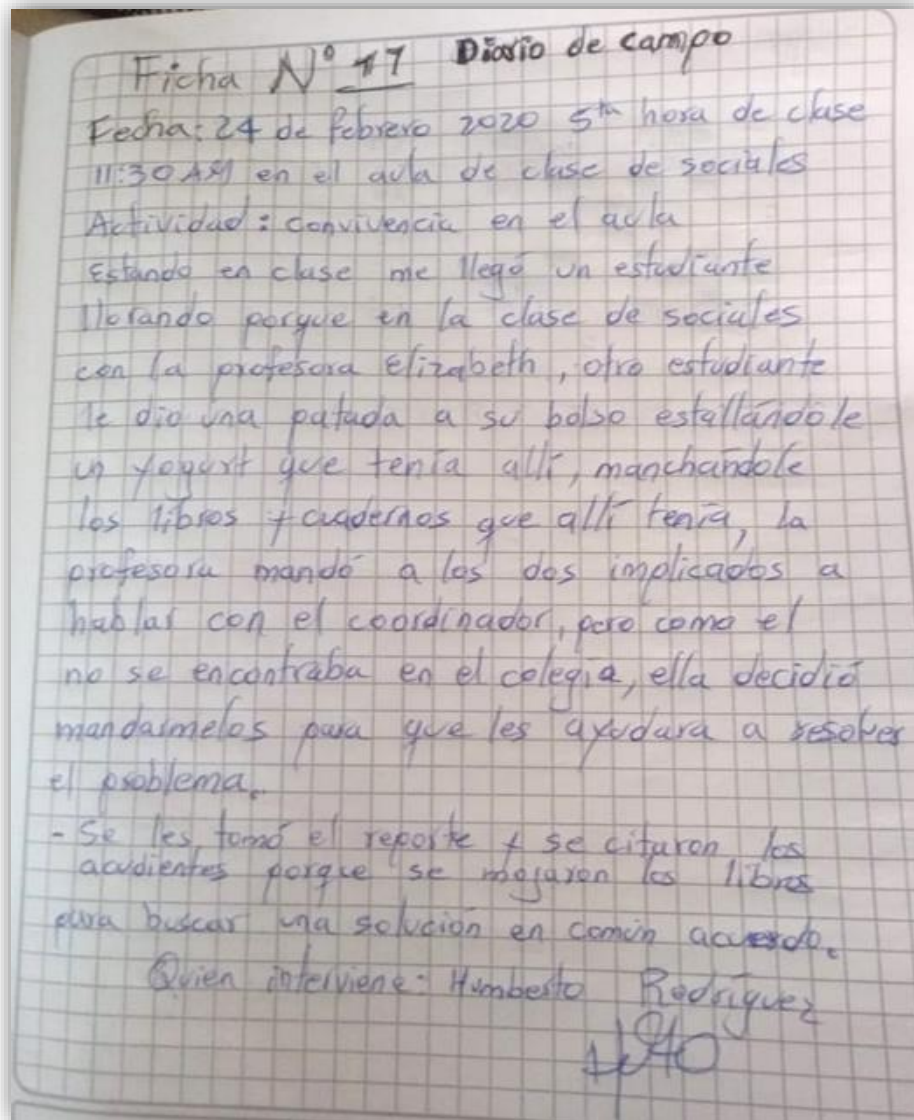 Ficha Nº 17 Diario de campo
Fecha: 24 de febrero 2020 5ta hora de clase
11:30 AM en el aula de clase de sociales
Actividad: convivencia en el aula
Estando en clase me llegó un estudiante
llorando porque en la clase de sociales
con la profesora Elizabeth, otro estudiante
le dio una patada a su bolso estallándole
un yogurt que tenía allí, manchándole
los libros y cuadernos que allí tenía, la
profesora mandó a los dos implicados a
hablar con el coordinador, pero como el
no se encontraba en el colegio, ella decidió
mandarmelos para que les ayudara a resolver
el problema.
- Se les tomó el reporte y se citaron los
acudientes porque se mojaron los libros
para buscar una solución en común acuerdo.
Quien interviene: Humberto Rodríguez